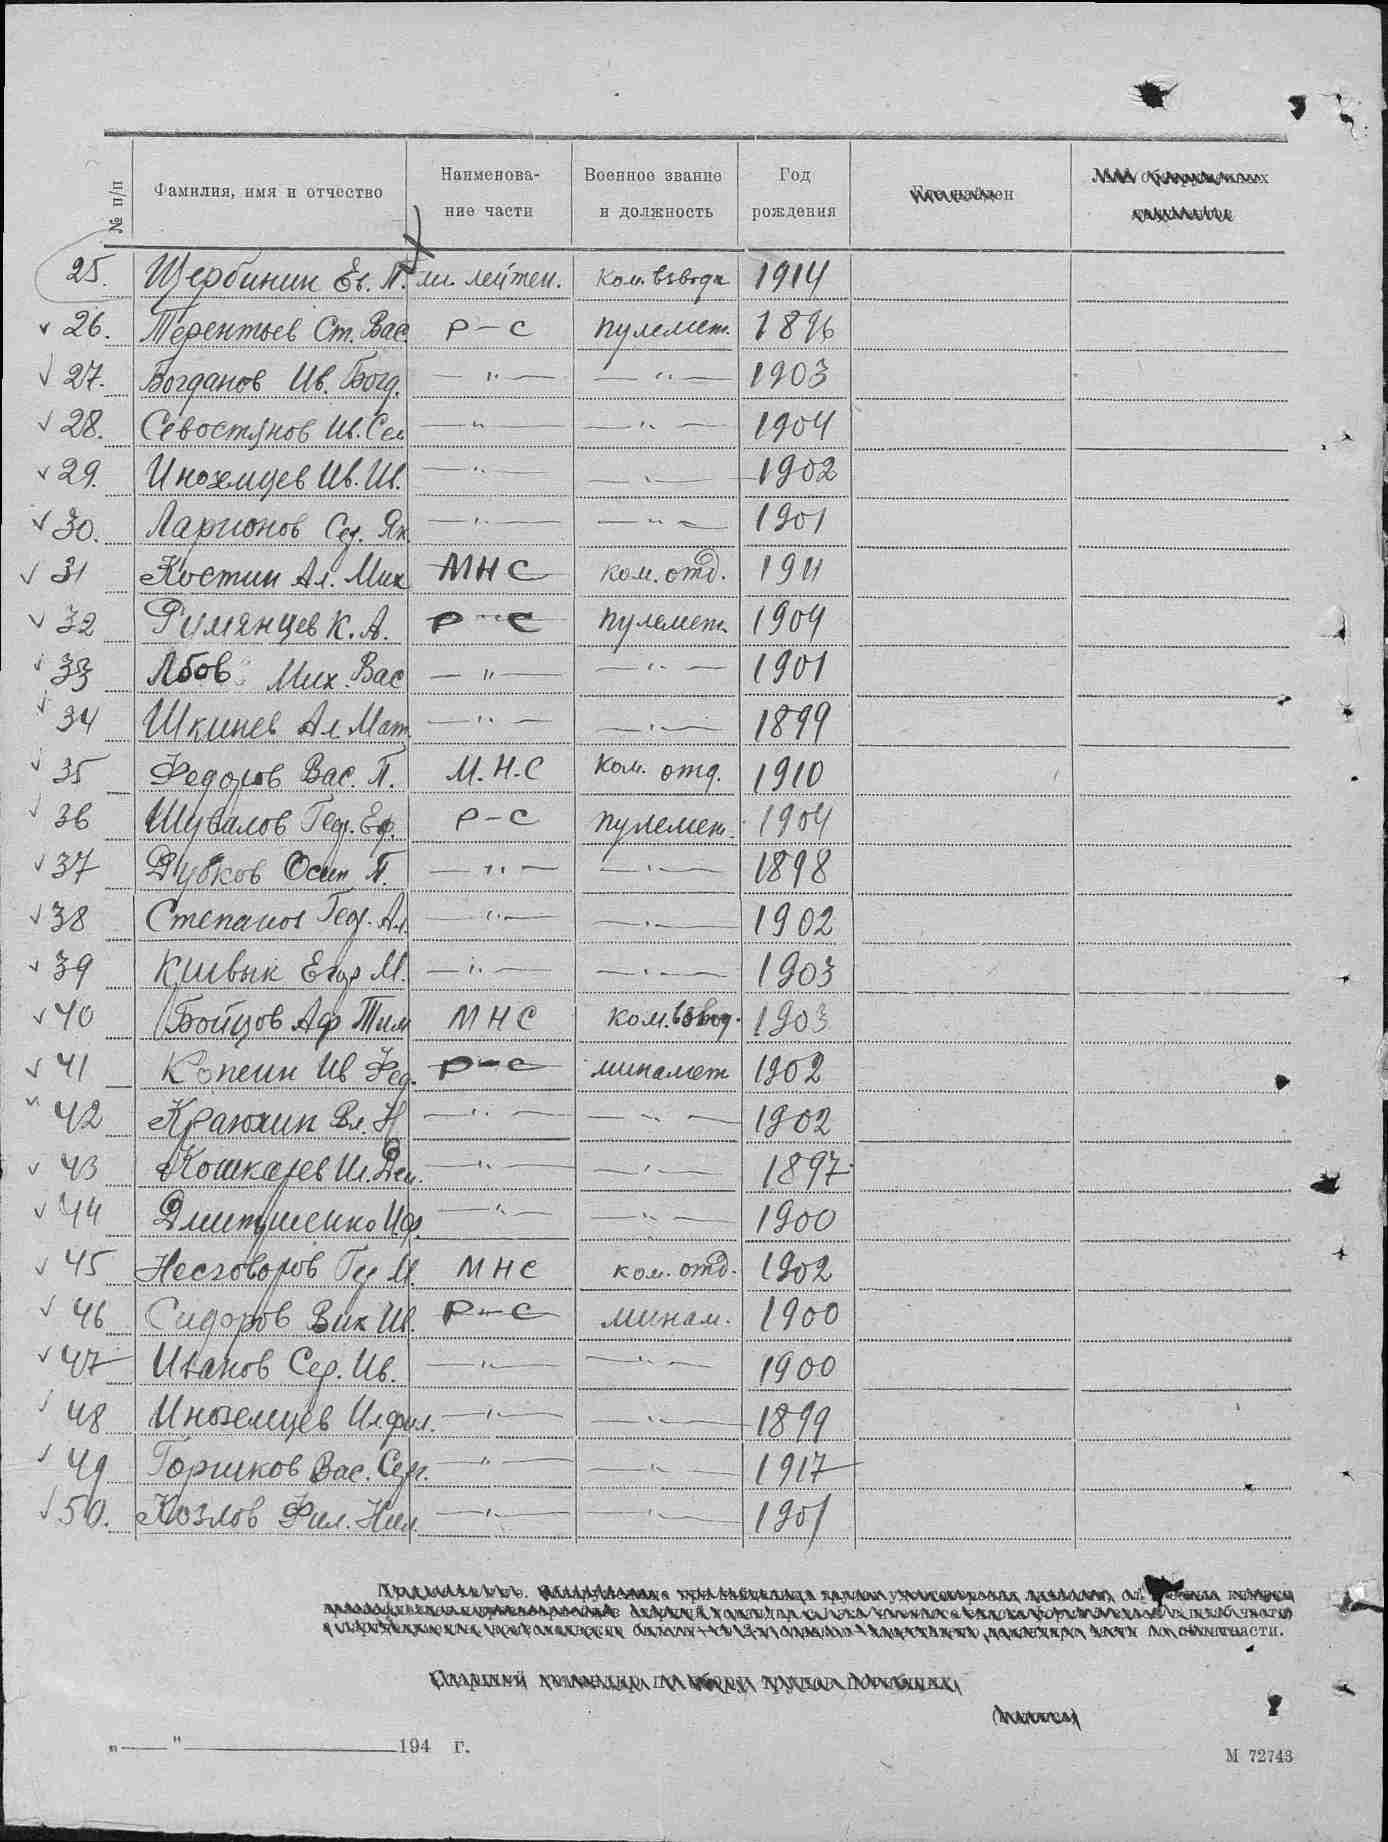 № п/п Фамилия, имя и отчество Наименова- Военное звание Год
ние части и должность рождения
25. Щербинин Ев. П. мл. лейтен. ком. взвода 1914
26. Терентьев Ст. Вас. Р-С пулемет. 1896
27. Богданов Ив. Богд. —"— —"— 1903
28. Севостянов Ив. Сем —"— —"— 1904
29. Иноземцев Ив. Ив. —"— —"— 1902
30. Ларионов Сер. Як. —"— —"— 1901
31 Костин Ал. Мих МНС ком. отд. 1911
32 Румянцев К. А. Р-С пулемет. 1904
33 Абов Мих. Вас —"— —"— 1901
34 Шкинев Ал. Мат. —"— —"— 1899
35 Федоров Вас. П. М.Н.С ком. отд. 1910
36 Шувалов Гео. Еф. Р-С пулемет. 1904
37 Дубков Осип П. —"— —"— 1898
38 Степанов Геор. Ал. —"— —"— 1902
39 Кшвык Егор М. —"— —"— 1903
40 Бойцов Аф Тим МНС ком. взвод. 1903
41 Копеин Ив Фед. Р-С минамет 1902
42 Краюхин Вл. Н —"— —"— 1902
43 Кошкарев Ил. Дем. —"— —"— 1897
44 Дмитришенко —"— —"— 1900
45 Несговоров М. МНС ком. отд. 1902
46 Сидоров Вик Ив. Р-С минам. 1900
47 Иванов Сер. Ив. —"— —"— 1900
48 Иноземцев Ил. фил. —"— —"— 1899
49 Горшков Вас. Серг. —"— —"— 1917
50. Козлов Фил. Ник. —"— —"— 1901
„—" 194 г.
М 72743